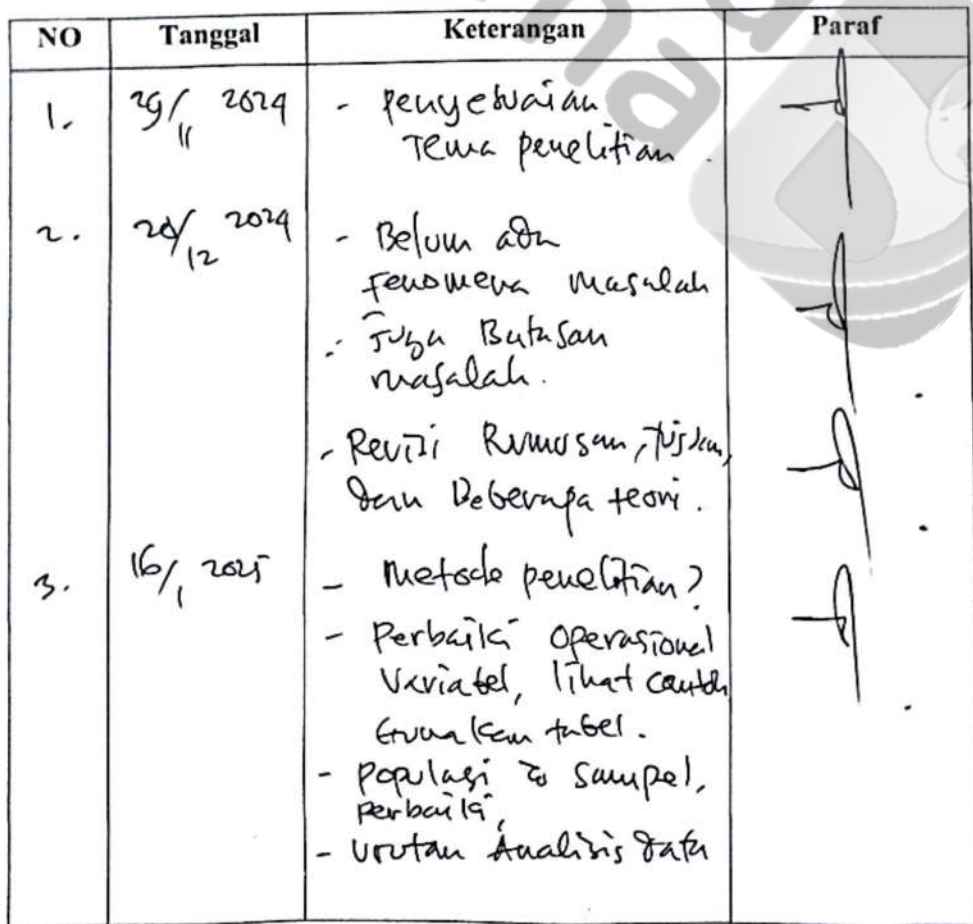 NO Tanggal Keterangan Paraf
1. 29/11 2024 - Penyesuaian
Tema penelitian.
2. 20/12 2024 - Belum ada
fenomena masalah
- Juga Batasan
masalah.
- Revisi Rumusan, tujuan,
dan Beberapa teori.
3. 16/1 2025 - Metode penelitian?
- Perbaiki Operasional
Variabel, lihat contoh
Gunakan tabel.
- Populasi & Sampel,
perbaiki,
- Urutan Analisis data